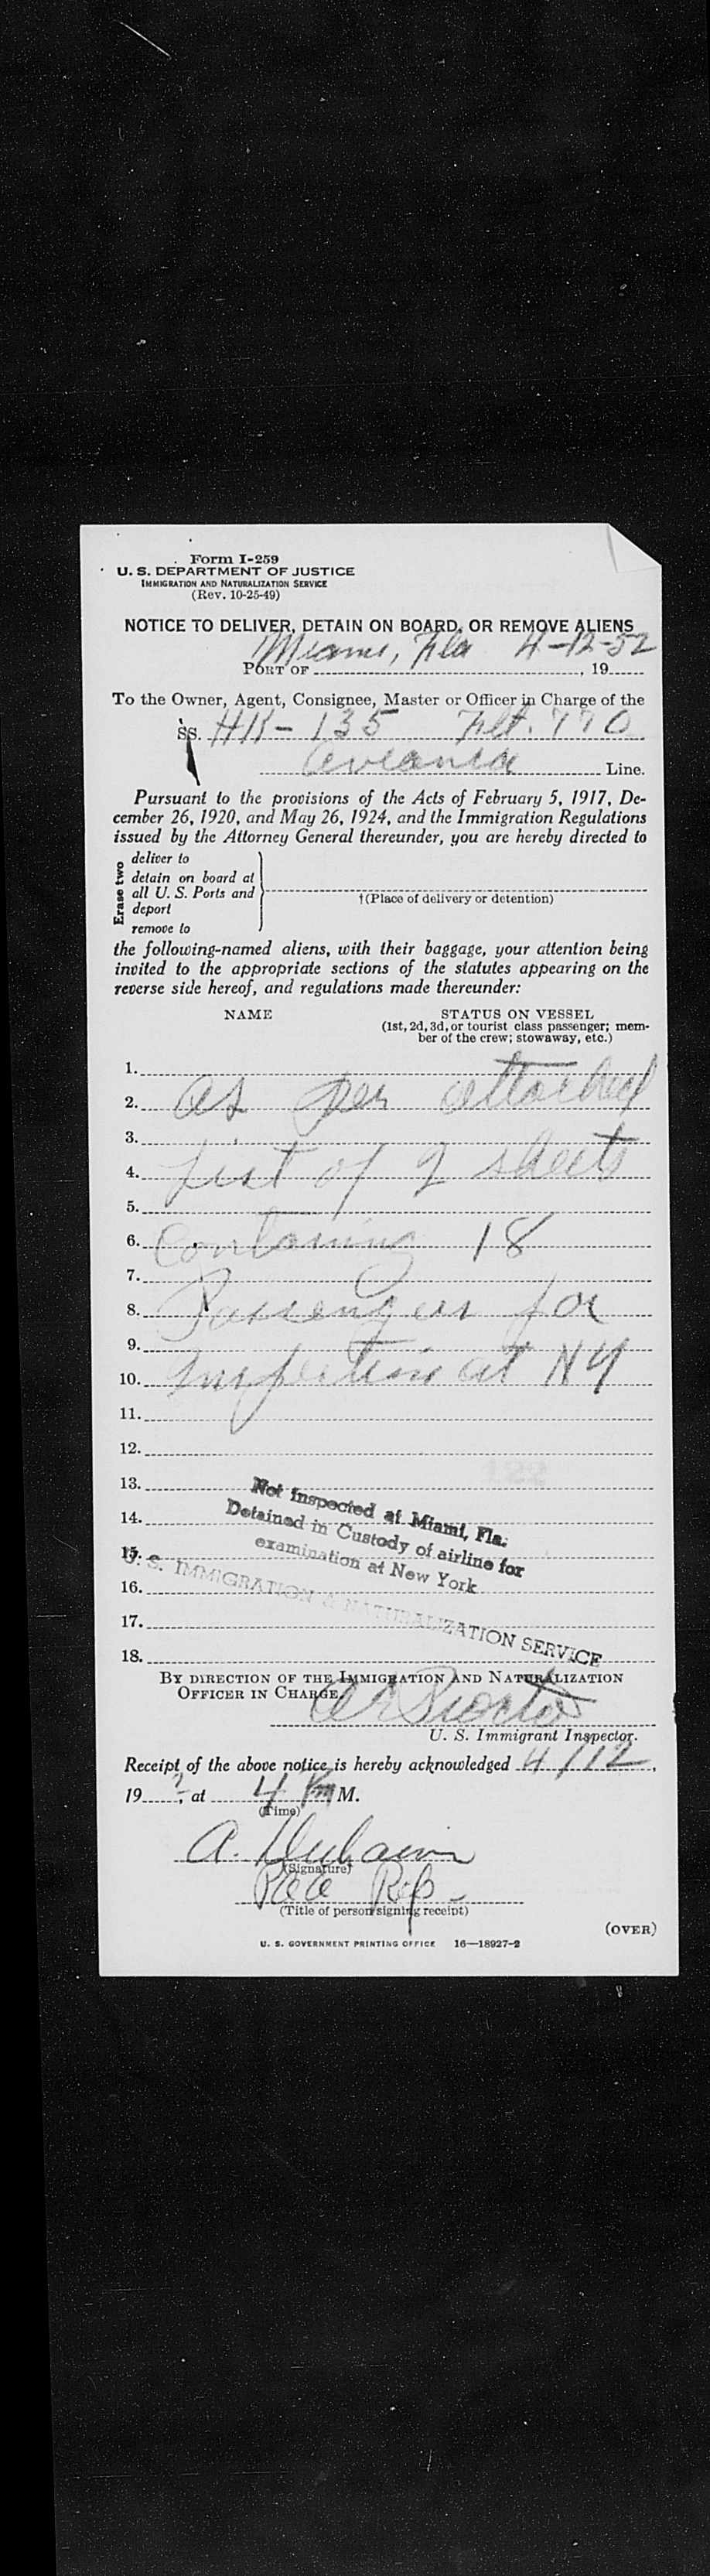 Form I-259
U. S. DEPARTMENT OF JUSTICE
IMMIGRATION AND NATURALIZATION SERVICE
(Rev. 10-25-49)
NOTICE TO DELIVER, DETAIN ON BOARD, OR REMOVE ALIENS
Miami, Fla 4-12-52
PORT OF , 19
To the Owner, Agent, Consignee, Master or Officer in Charge of the
SS. HK-135 Flt. 770
Avianca Line.
Pursuant to the provisions of the Acts of February 5, 1917, De-
cember 26, 1920, and May 26, 1924, and the Immigration Regulations
issued by the Attorney General thereunder, you are hereby directed to
Erase two
deliver to
detain on board at
all U. S. Ports and
deport
remove to
†(Place of delivery or detention)
the following-named aliens, with their baggage, your attention being
invited to the appropriate sections of the statutes appearing on the
reverse side hereof, and regulations made thereunder:
NAME STATUS ON VESSEL
(1st, 2d, 3d, or tourist class passenger; mem-
ber of the crew; stowaway, etc.)
1.
2. as per attached
3.
4. List of 2 sheets
5.
6. Containing 18
7.
8. Passengers for
9.
10. Inspection at NY
11.
12.
13.
14.
15.
16.
17.
18.
Not Inspected at Miami, Fla.
Detained in Custody of airline for
examination at New York
U. S. IMMIGRATION & NATURALIZATION SERVICE
BY DIRECTION OF THE IMMIGRATION AND NATURALIZATION
OFFICER IN CHARGE
U. S. Immigrant Inspector.
Receipt of the above notice is hereby acknowledged 4/12,
19 , at 4 Pm M.
(Time)
A.
(Signature)
Paa Rep-
(Title of person signing receipt)
(OVER)
U. S. GOVERNMENT PRINTING OFFICE 16—18927-2